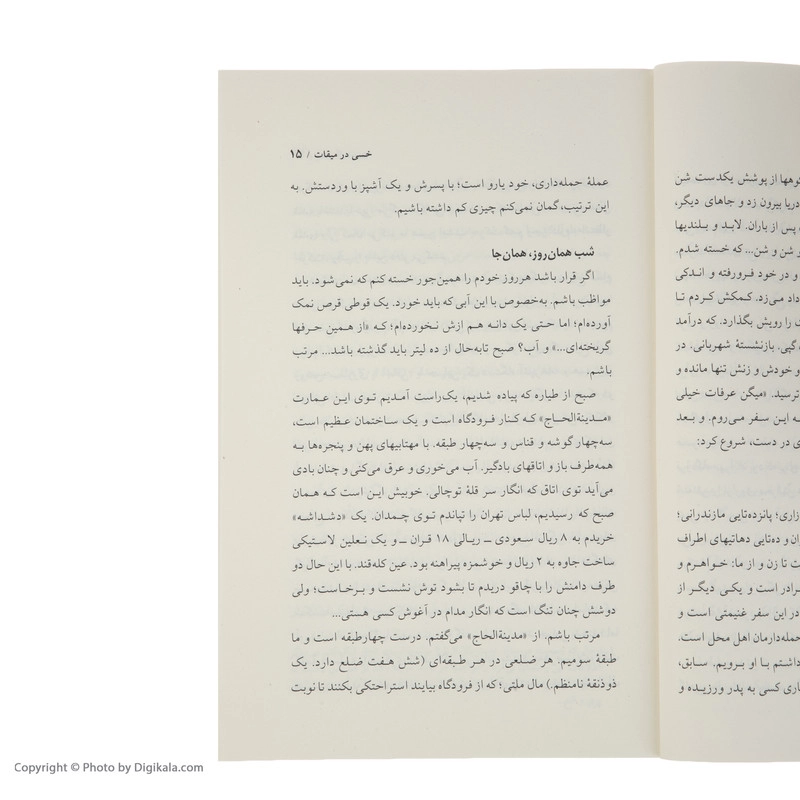 کوهها از پوشش یکدست شن
دریا بیرون زد و جاهای دیگر،
پس از باران. لابد و بلندیها
و شن و شن... که خسته شدم.
و در خود فرورفته و اندکی
داد می‌زد. کمکش کردم تا
را رویش بگذارد. که درآمد
گپی. بازنشستهٔ شهربانی. در
و خودش و زنش تنها مانده و
ترسید. «میگن عرفات خیلی
ه این سفر می‌روم. و بعد
ی در دست، شروع کرد:
زاری؛ پانزده‌تایی مازندرانی؛
ران و ده‌تایی دهاتیهای اطراف
ت تا زن و از ما: خواهرم و
رادر است و یکی دیگر از
در این سفر غنیمتی است و
حمله‌دارمان اهل محل است.
داشتم با او برویم. سابق،
اری کسی به پدر ورزیده و
خسی در میقات / ۱۵
عملهٔ حمله‌داری، خود یارو است؛ با پسرش و یک آشپز با وردستش. به
این ترتیب، گمان نمی‌کنم چیزی کم داشته باشیم.
شب همان‌روز، همان‌جا
اگر قرار باشد هرروز خودم را همین‌جور خسته کنم که نمی‌شود. باید
مواظب باشم. به‌خصوص با این آبی که باید خورد. یک قوطی قرص نمک
آورده‌ام؛ اما حتی یک دانه هم ازش نخورده‌ام؛ که «از همین حرفها
گریخته‌ای...» و آب؟ صبح تابه‌حال از ده لیتر باید گذشته باشد... مرتب
باشم.
صبح از طیاره که پیاده شدیم، یک‌راست آمدیم توی این عمارت
«مدینةالحاج» که کنار فرودگاه است و یک ساختمان عظیم است،
سه‌چهار گوشه و قناس و سه‌چهار طبقه. با مهتابیهای پهن و پنجره‌ها به
همه‌طرف باز و اتاقهای بادگیر. آب می‌خوری و عرق می‌کنی و چنان بادی
می‌آید توی اتاق که انگار سر قلهٔ توچالی. خوبیش این است که همان
صبح که رسیدیم، لباس تهران را تپاندم توی چمدان. یک «دشداشه»
خریدم به ۸ ریال سعودی ــ ریالی ۱۸ قران ــ و یک نعلین لاستیکی
ساخت جاوه به ۲ ریال و خوشمزه پیراهنه بود. عین کله‌قند. با این حال دو
طرف دامنش را با چاقو دریدم تا بشود توش نشست و برخاست؛ ولی
دوشش چنان تنگ است که انگار مدام در آغوش کسی هستی...
مرتب باشم. از «مدینةالحاج» می‌گفتم. درست چهارطبقه است و ما
طبقهٔ سومیم. هر ضلعی در هر طبقه‌ای (شش هفت ضلع دارد. یک
ذوذنقهٔ نامنظم.) مال ملتی؛ که از فرودگاه بیایند استراحتکی بکنند تا نوبت
Copyright © Photo by Digikala.com